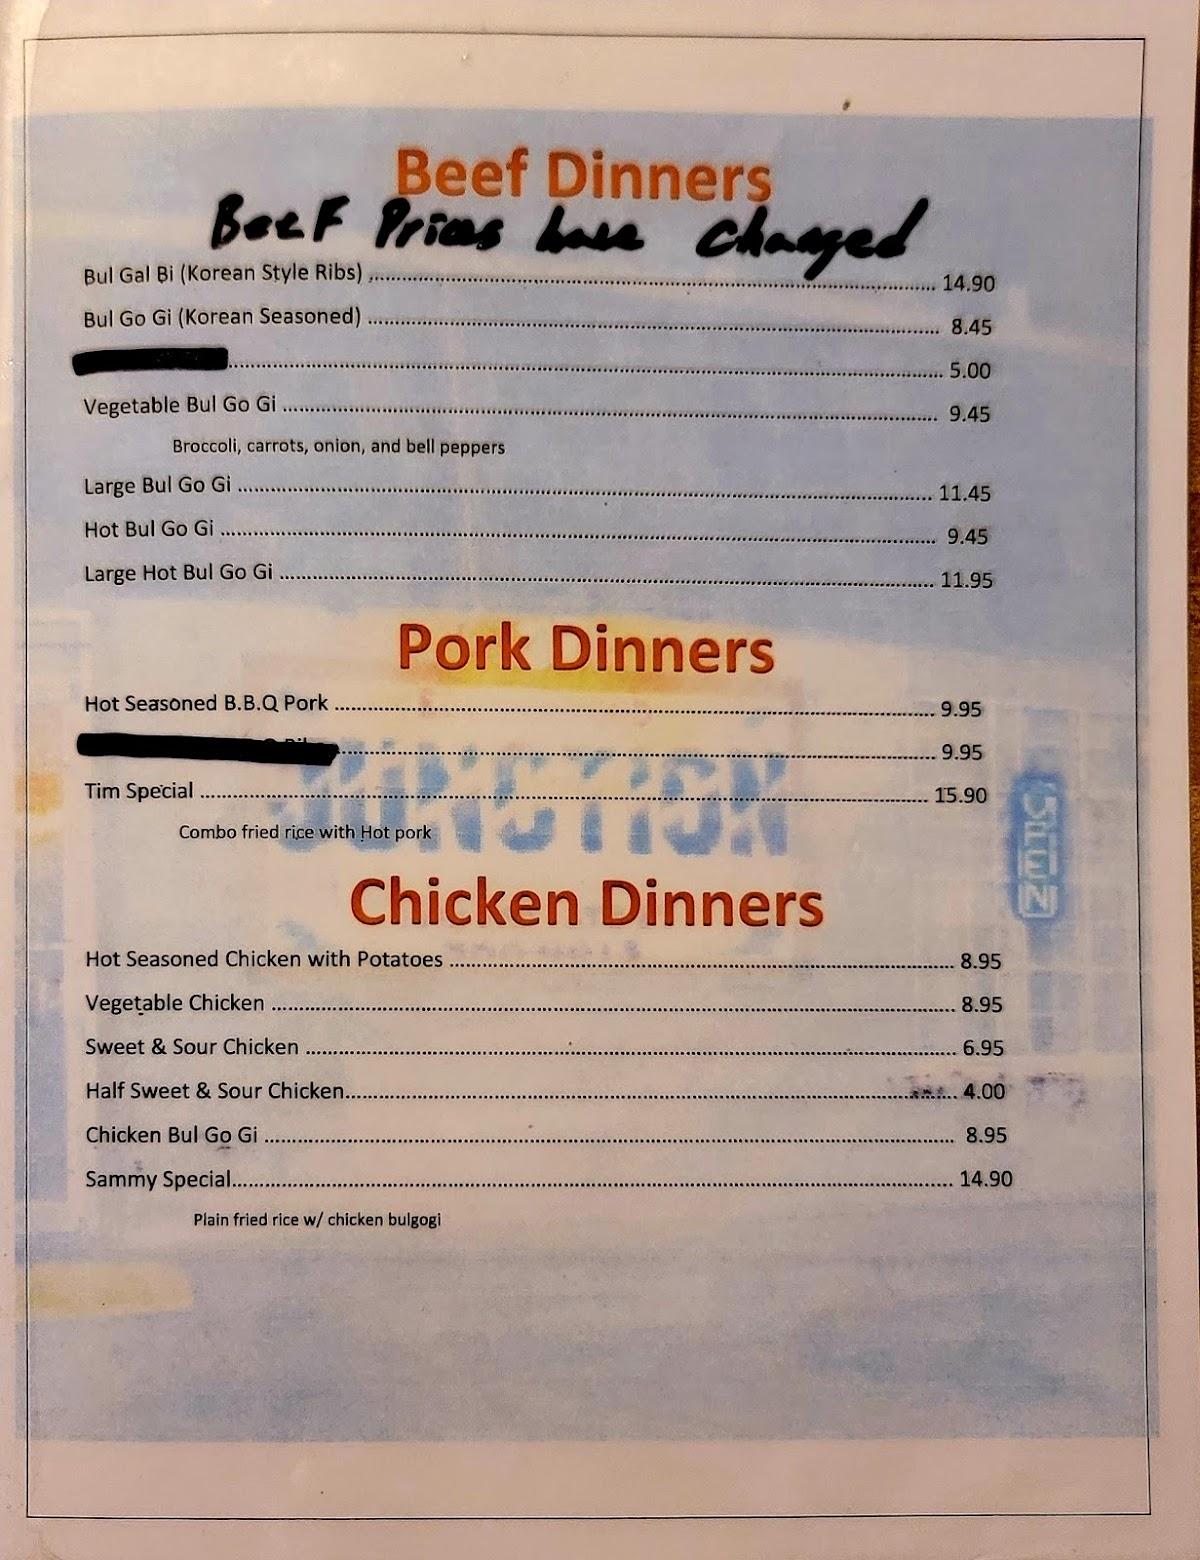 Beef Dinners
BeeF Prices have changed
Bul Gal Bi (Korean Style Ribs) ........ 14.90
Bul Go Gi (Korean Seasoned) ........ 8.45
........ 5.00
Vegetable Bul Go Gi ........ 9.45
Broccoli, carrots, onion, and bell peppers
Large Bul Go Gi ........ 11.45
Hot Bul Go Gi ........ 9.45
Large Hot Bul Go Gi ........ 11.95
Pork Dinners
Hot Seasoned B.B.Q Pork ........ 9.95
........ 9.95
Tim Special ........ 15.90
Combo fried rice with Hot pork
JUNCTION
OPEN
Chicken Dinners
Hot Seasoned Chicken with Potatoes ........ 8.95
Vegetable Chicken ........ 8.95
Sweet & Sour Chicken ........ 6.95
Half Sweet & Sour Chicken........ 4.00
Chicken Bul Go Gi ........ 8.95
Sammy Special........ 14.90
Plain fried rice w/ chicken bulgogi